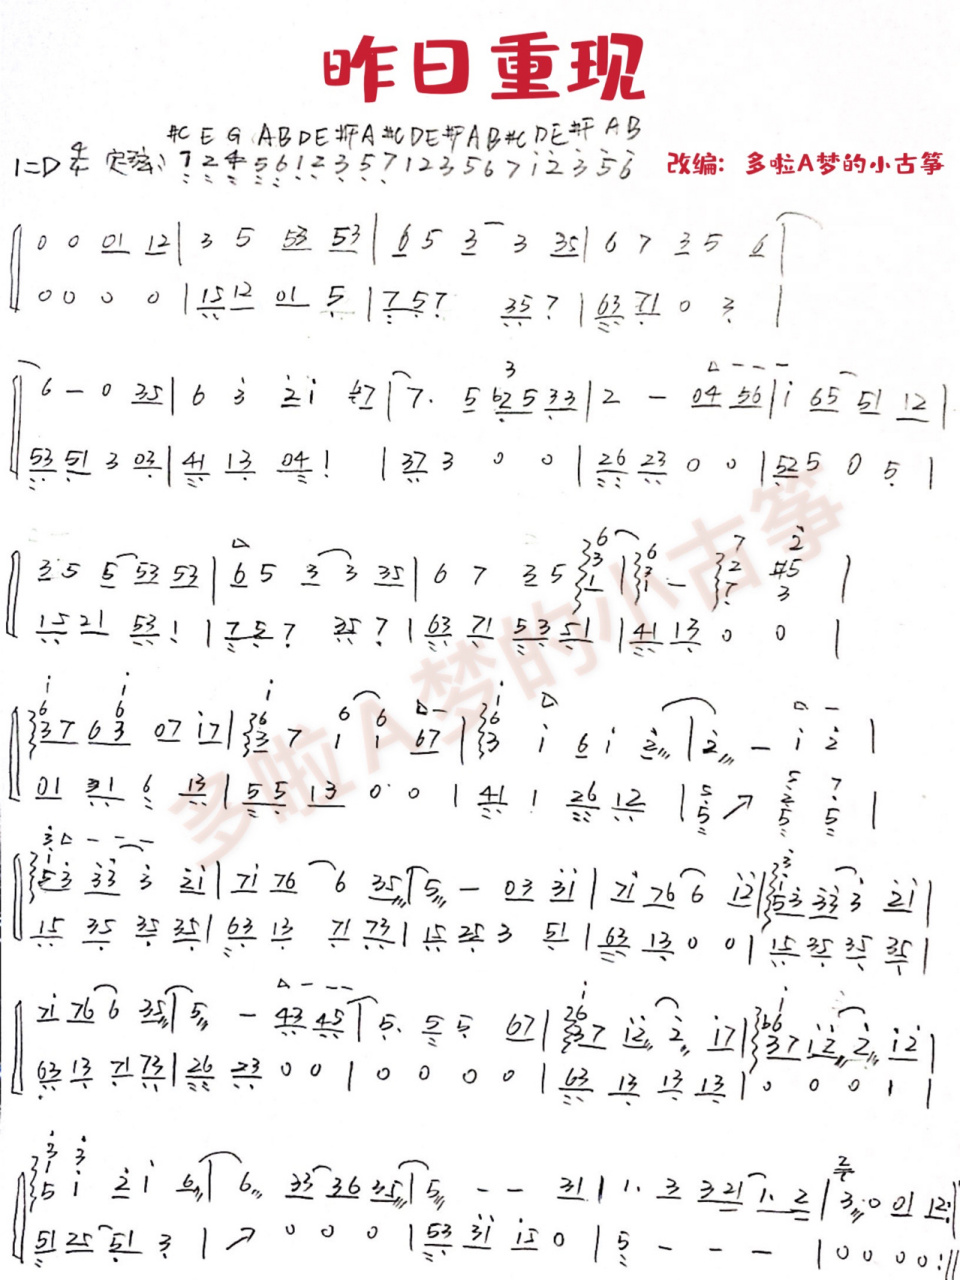 昨日重现
#C E G A B D E #F A #C D E #F A B #C D E #F A B
1=D 4/4 定弦: 7 2 4 5 6 1 2 3 5 7 1 2 3 5 6 7 1 2 3 5 6 改编: 多啦A梦的小古筝
0 0 01 12 | 3 5 53 53 | 6 5 3 3 35 | 6 7 3 5 6 |
0 0 0 0 | 15 12 01 5 | 7 5 7 35 7 | 63 71 0 3 |
6 - 0 35 | 6 3 2 1 | 2 - 04 56 | 1 65 51 12 |
53 51 3 03 | 41 13 04 1 | 37 3 0 0 | 26 23 0 0 | 52 5 0 5 |
3 5 5 53 53 | 6 5 3 3 35 | 6 7 3 5
15 21 53 1 | 7 5 7 35 7 | 63 71 53 51 | 41 13 0 0 |
37 63 07 17 | 3 7 1 1 67 | 3 1 6 1 2 | 2 - 1 2 |
01 6 13 | 55 13 0 0 | 41 1 26 12 |
53 33 3 21 | 71 76 6 35 | 5 - 03 31 | 71 76 6 12 | 53 33 3 21 |
15 35 35 35 | 63 13 71 73 | 15 35 3 51 | 63 13 0 0 | 15 35 35 35 |
71 76 6 35 | 5 - 43 45 | 5. 5 5 67 | 37 12 2 17 | 37 12 2 12 |
63 13 71 73 | 26 23 0 0 | 0 0 0 0 | 63 13 13 13 | 0 0 0 1 |
5 1 2 1 6 | 6 33 36 35 | 5 - - 31 | 1. 3 3 21 1. 2 | 3 0 01 12 :|
51 25 51 3 | 0 0 0 | 53 31 15 0 | 5 - - - | 0 0 0 0 :|
多啦A梦的小古筝